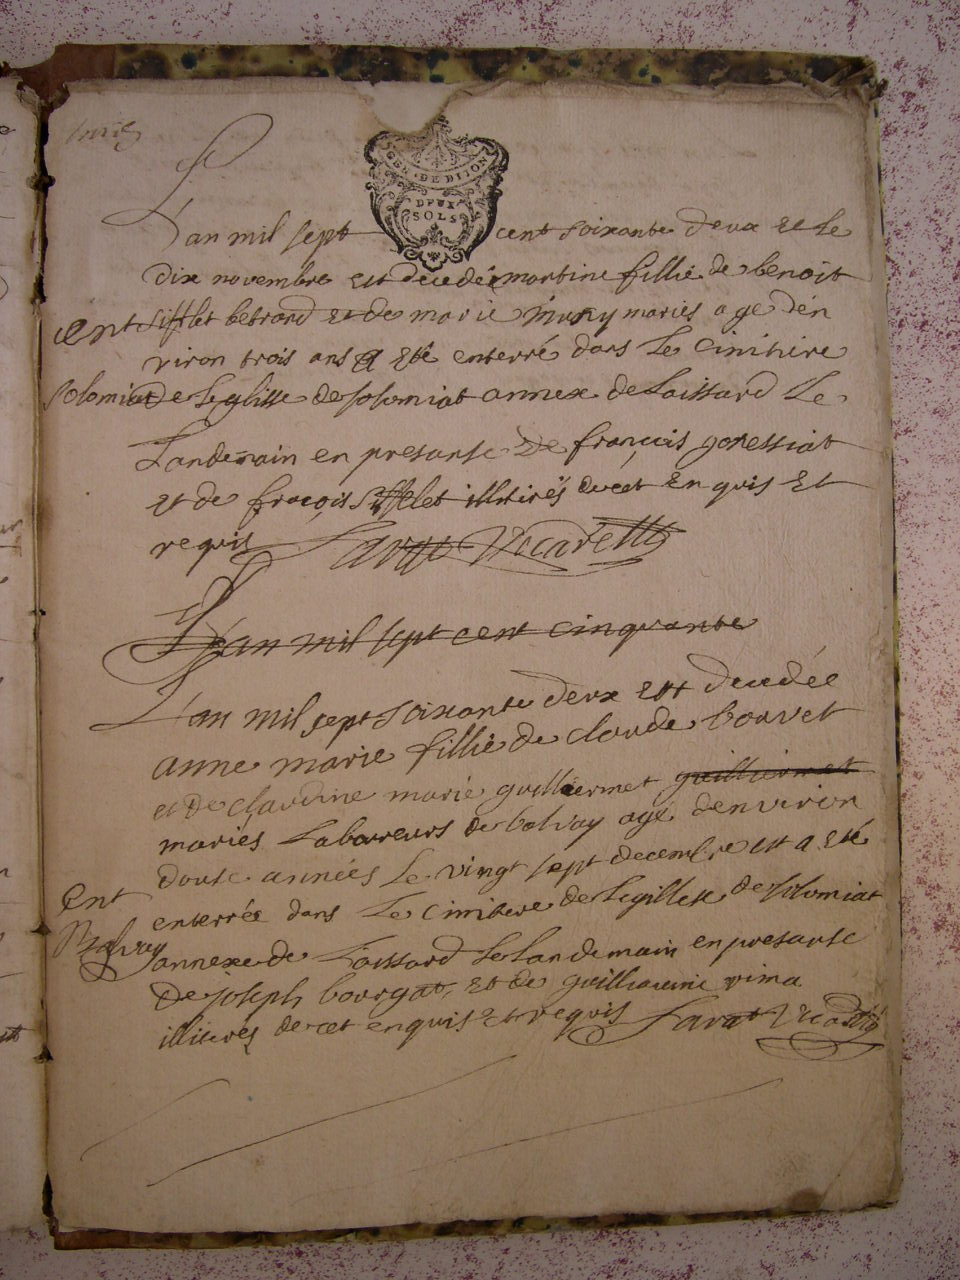 GEN · DE DIJON
DEUX
SOLS
L'an mil sept cent soixante deux et le
dix novembre est decedée martine fillie de benoit
sifflet betrand et de marie mariés age den
Ent
viron trois ans a eté enterré dans le cimitiere
Solomiat
de leglisse de solomiat annexe de Laissard le
Landemain en presanse de françois goressiat
et de fraçois sifflet illitirés decet enquis et
requis
L'an mil sept cent cinquante
L'an mil sept soixante deux est decedée
anne marie fillie de claude bouvet
et de claudine marie guilliermet guilliermet
mariés Laboureurs de bolvay agé denviron
douse années le vingt sept decembre est a eté
Ent
enterrée dans le cimitiere de leglisse de solomiat
annexe de Laissard le landemain en presanse
de joseph bourgat, et de
illiteres de cet enquis et requis